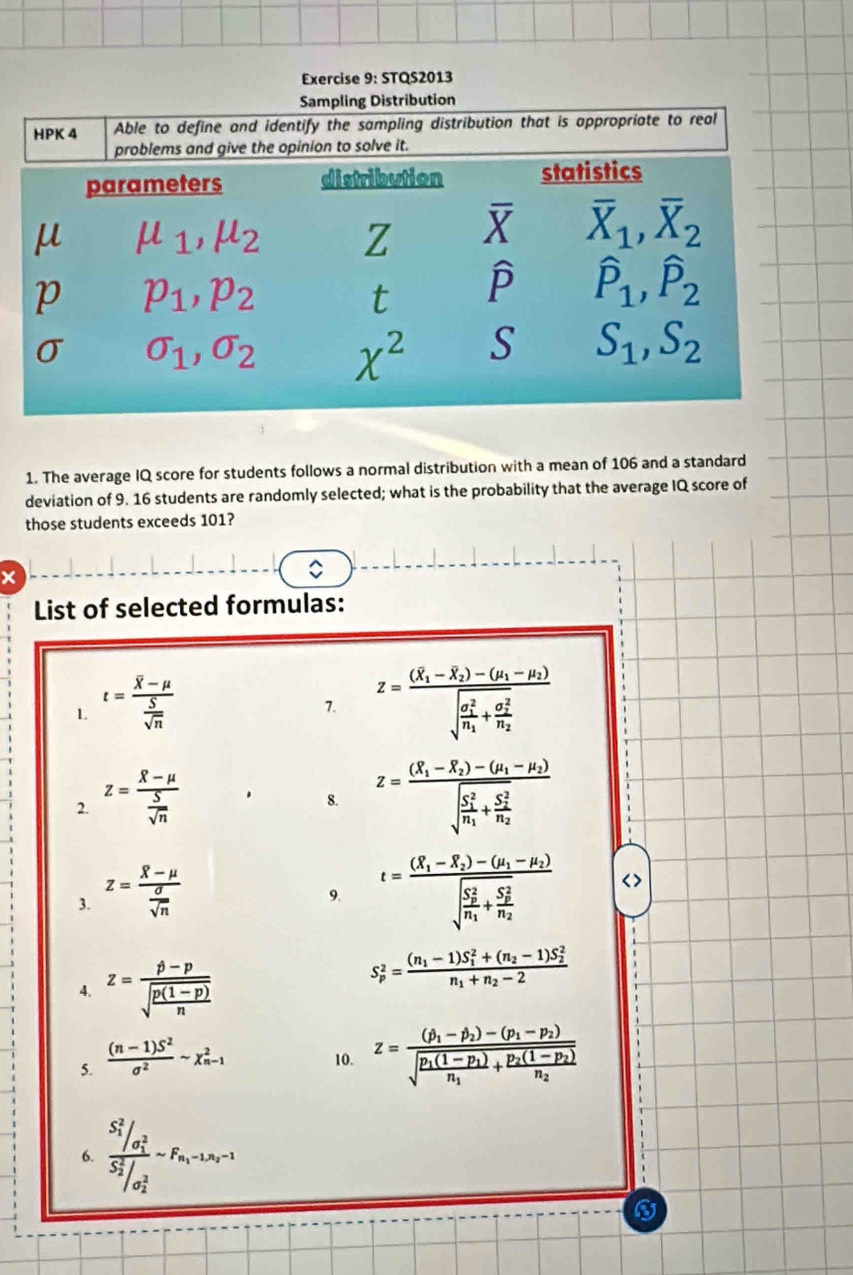 Exercise 9: STQS2013
Sampling Distribution
HPK 4 Able to define and identify the sampling distribution that is appropriate to real
problems and give the opinion to solve it.
parameters distribution statistics
μ μ₁, μ₂ Z X̅ X̅₁, X̅₂
p p₁, p₂ t P̂ P̂₁, P̂₂
σ σ₁, σ₂ χ² S S₁, S₂
1. The average IQ score for students follows a normal distribution with a mean of 106 and a standard
deviation of 9. 16 students are randomly selected; what is the probability that the average IQ score of
those students exceeds 101?
List of selected formulas:
1. t = (X̅ − μ) / (S/√n)
2. Z = (X̅ − μ) / (S/√n)
3. Z = (X̅ − μ) / (σ/√n)
4. Z = (p̂ − p) / √(p(1 − p)/n)
5. (n − 1)S²/σ² ~ χ²ₙ₋₁
6. (S₁²/σ₁²) / (S₂²/σ₂²) ~ F_{n₁−1,n₂−1}
7. Z = ((X̅₁ − X̅₂) − (μ₁ − μ₂)) / √(σ₁²/n₁ + σ₂²/n₂)
8. Z = ((X̅₁ − X̅₂) − (μ₁ − μ₂)) / √(S₁²/n₁ + S₂²/n₂)
9. t = ((X̅₁ − X̅₂) − (μ₁ − μ₂)) / √(Sₚ²/n₁ + Sₚ²/n₂)
Sₚ² = ((n₁ − 1)S₁² + (n₂ − 1)S₂²) / (n₁ + n₂ − 2)
10. Z = ((p̂₁ − p̂₂) − (p₁ − p₂)) / √(p₁(1 − p₁)/n₁ + p₂(1 − p₂)/n₂)